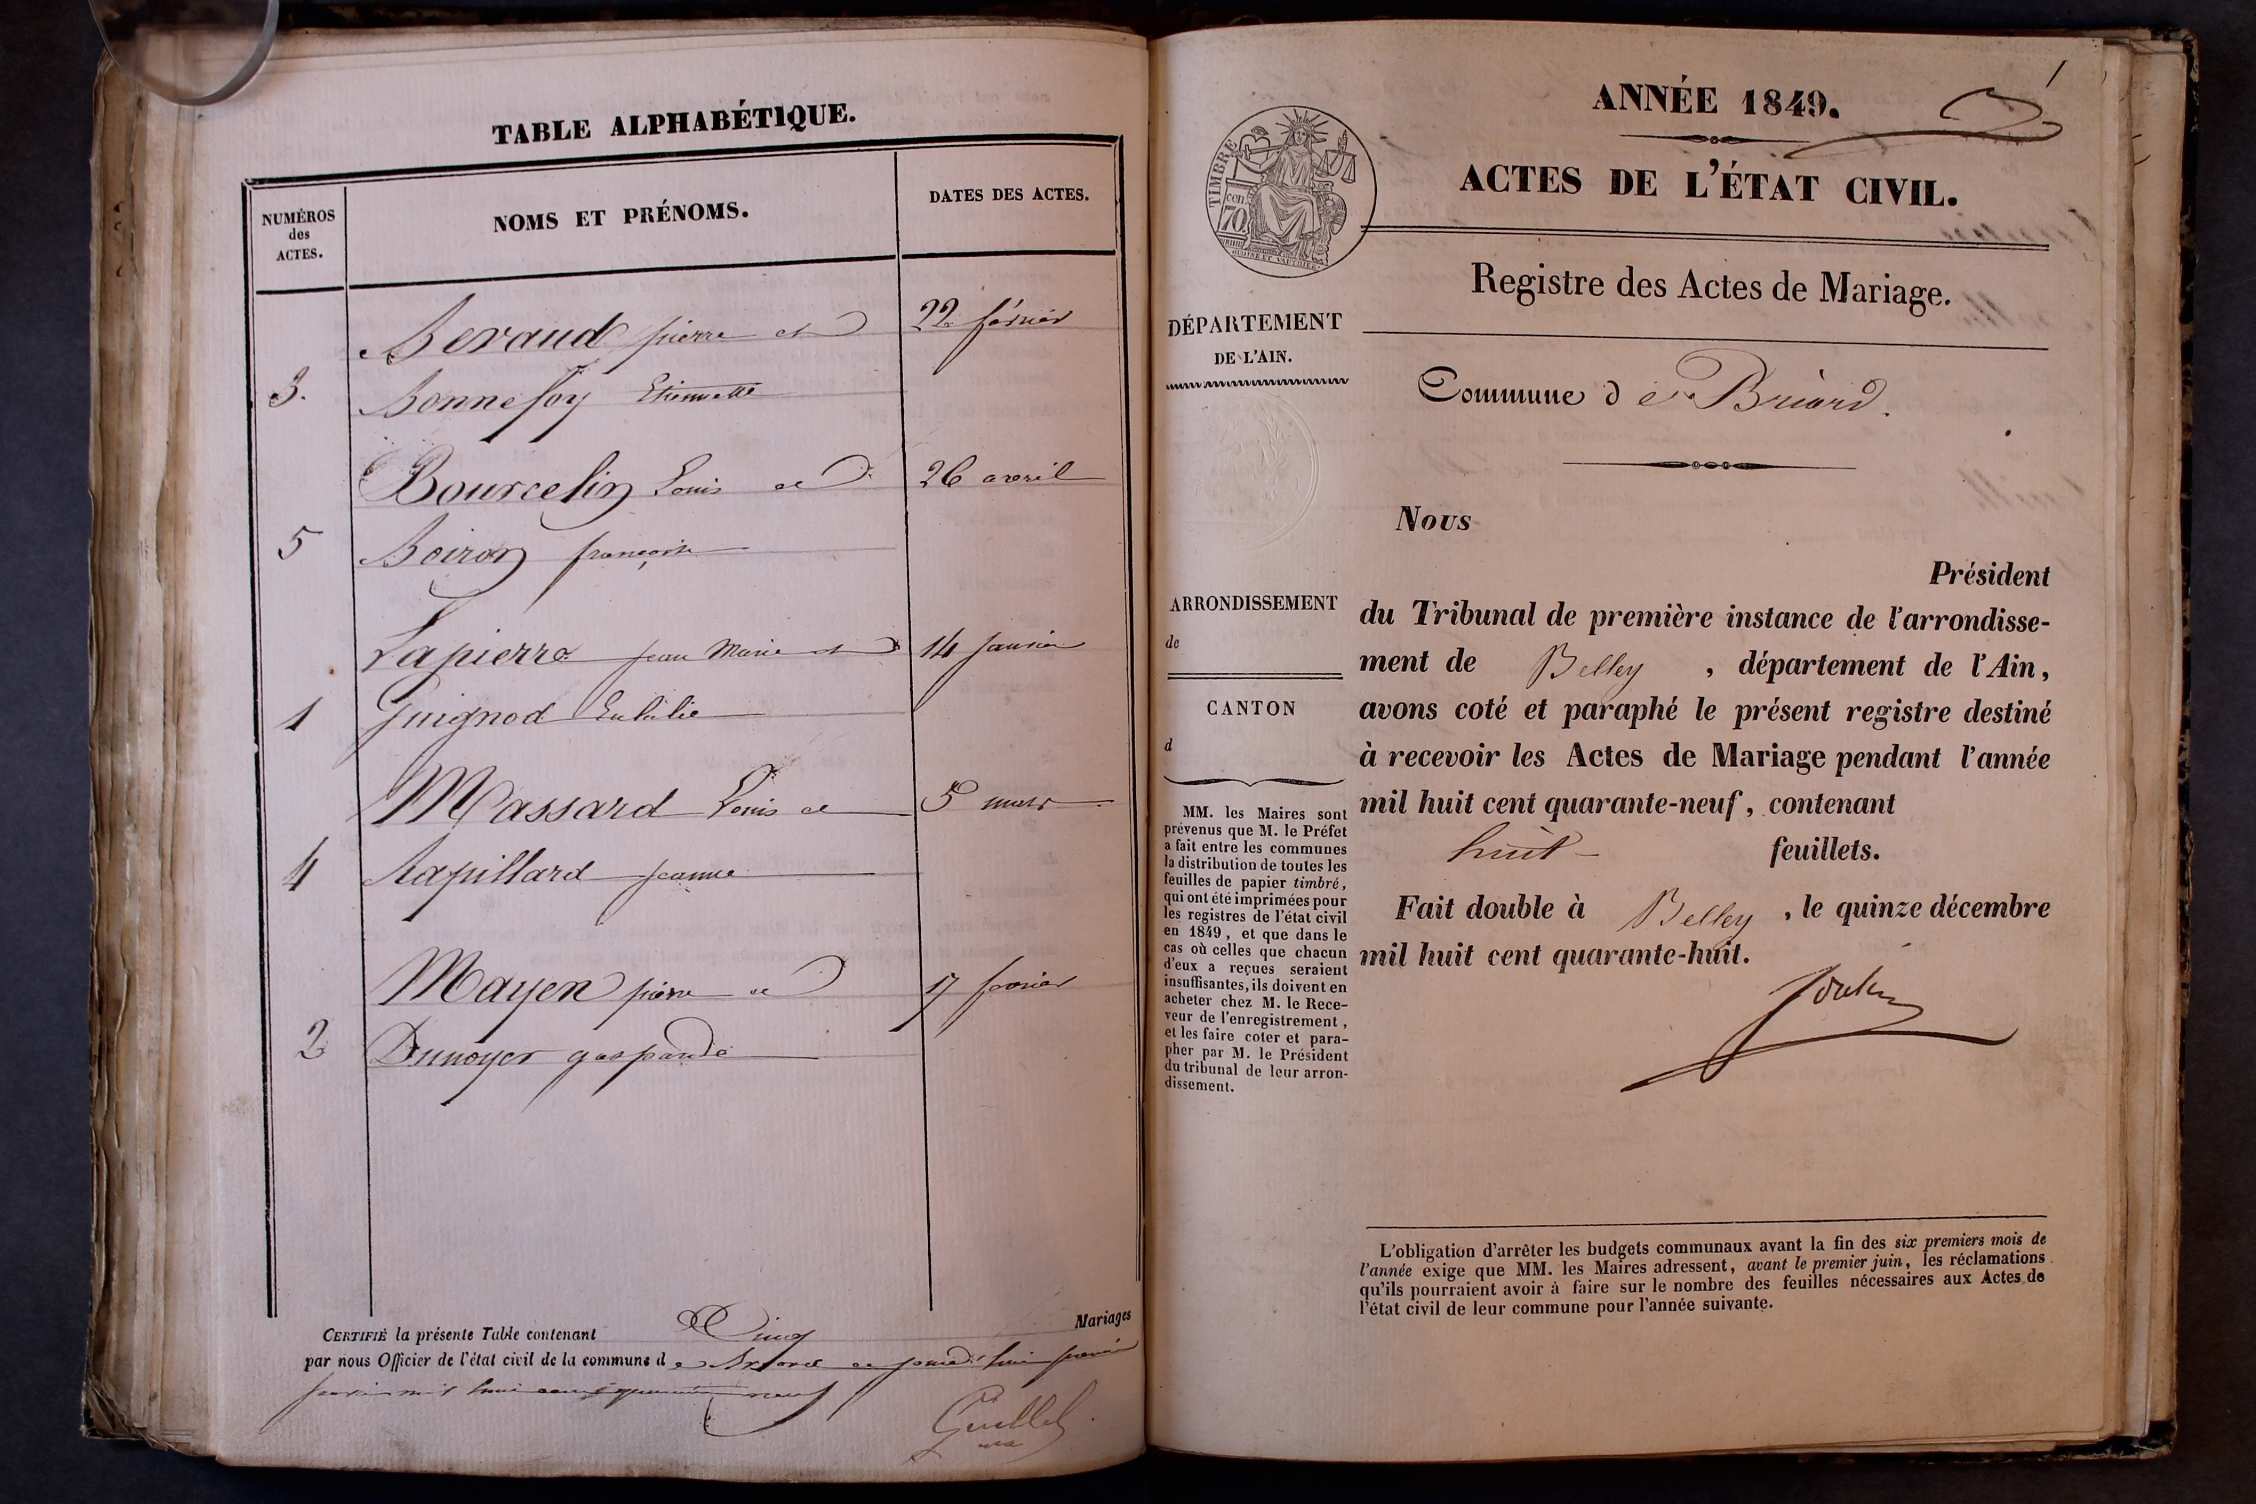 TABLE ALPHABÉTIQUE.
NUMÉROS
des
ACTES.
NOMS ET PRÉNOMS.
DATES DES ACTES.
Beraud pierre et
22 février
3.
Bonnefoy Etiennette
Bourcelin Louis et
26 avril
5
Boiron françoise
Lapierre Jean Marie et
14 Janvier
1
Guignod Eulalie
Massard Louis et
5 mars
4
Rapillard Jeanne
Mayen pierre et
17 fevrier
2
Dunoyer gasparde
CERTIFIÉ la présente Table contenant Cinq Mariages
par nous Officier de l'état civil de la commune de Briord
mil huit cent neuf
ANNÉE 1849.
1
ACTES DE L'ÉTAT CIVIL.
TIMBRE
70
Registre des Actes de Mariage.
DÉPARTEMENT
DE L'AIN.
Commune de Briord.
ARRONDISSEMENT
de
CANTON
d
MM. les Maires sont
prévenus que M. le Préfet
a fait entre les communes
la distribution de toutes les
feuilles de papier timbré,
qui ont été imprimées pour
les registres de l'état civil
en 1849, et que dans le
cas où celles que chacun
d'eux a reçues seraient
insuffisantes, ils doivent en
acheter chez M. le Rece-
veur de l'enregistrement,
et les faire coter et para-
pher par M. le Président
du tribunal de leur arron-
dissement.
Nous
Président
du Tribunal de première instance de l'arrondisse-
ment de Belley, département de l'Ain,
avons coté et paraphé le présent registre destiné
à recevoir les Actes de Mariage pendant l'année
mil huit cent quarante-neuf, contenant
huit feuillets.
Fait double à Belley, le quinze décembre
mil huit cent quarante-huit.
L'obligation d'arrêter les budgets communaux avant la fin des six premiers mois de
l'année exige que MM. les Maires adressent, avant le premier juin, les réclamations
qu'ils pourraient avoir à faire sur le nombre des feuilles nécessaires aux Actes de
l'état civil de leur commune pour l'année suivante.